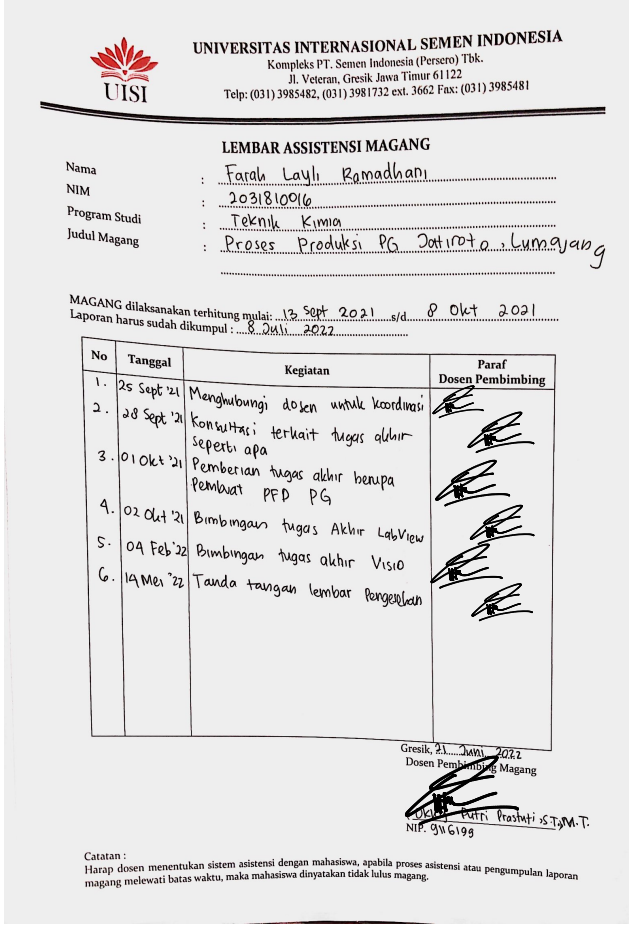 UISI
UNIVERSITAS INTERNASIONAL SEMEN INDONESIA
Kompleks PT. Semen Indonesia (Persero) Tbk.
Jl. Veteran, Gresik Jawa Timur 61122
Telp: (031) 3985482, (031) 3981732 ext. 3662 Fax: (031) 3985481
LEMBAR ASSISTENSI MAGANG
Nama : Farah Layli Ramadhani
NIM : 2031810016
Program Studi : Teknik Kimia
Judul Magang : Proses Produksi PG Jatiroto, Lumajang
MAGANG dilaksanakan terhitung mulai: 13 Sept 2021 s/d 8 Okt 2021
Laporan harus sudah dikumpul : 8 Juli 2022
No Tanggal Kegiatan Paraf
Dosen Pembimbing
1. 25 Sept '21 Menghubungi dosen untuk koordinasi
2. 28 Sept '21 Konsultasi terkait tugas akhir
seperti apa
3. 01 Okt '21 Pemberian tugas akhir berupa
Pembuat PFD PG
4. 02 Okt '21 Bimbingan tugas Akhir LabView
5. 04 Feb '22 Bimbingan tugas akhir Visio
6. 14 Mei '22 Tanda tangan lembar Pengesahan
Gresik, 21 Juni 2022
Dosen Pembimbing Magang
Putri Prastuti, S.T., M.T.
NIP. 9116199
Catatan :
Harap dosen menentukan sistem asistensi dengan mahasiswa, apabila proses asistensi atau pengumpulan laporan
magang melewati batas waktu, maka mahasiswa dinyatakan tidak lulus magang.